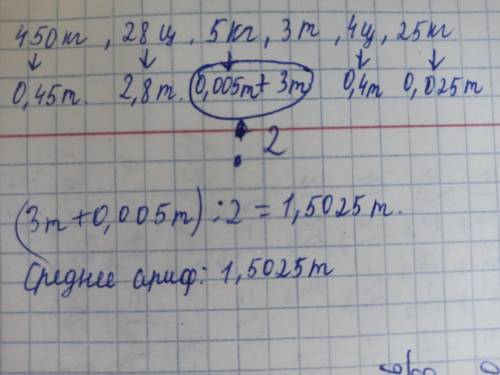 450кг, 28ц, 5кг, 3т, 4ц, 25кг
0,45т. 2,8т. 0,005т+ 3т 0,4т 0,025т
: 2
(3т+0,005т):2=1,5025т.
Среднее ариф: 1,5025т